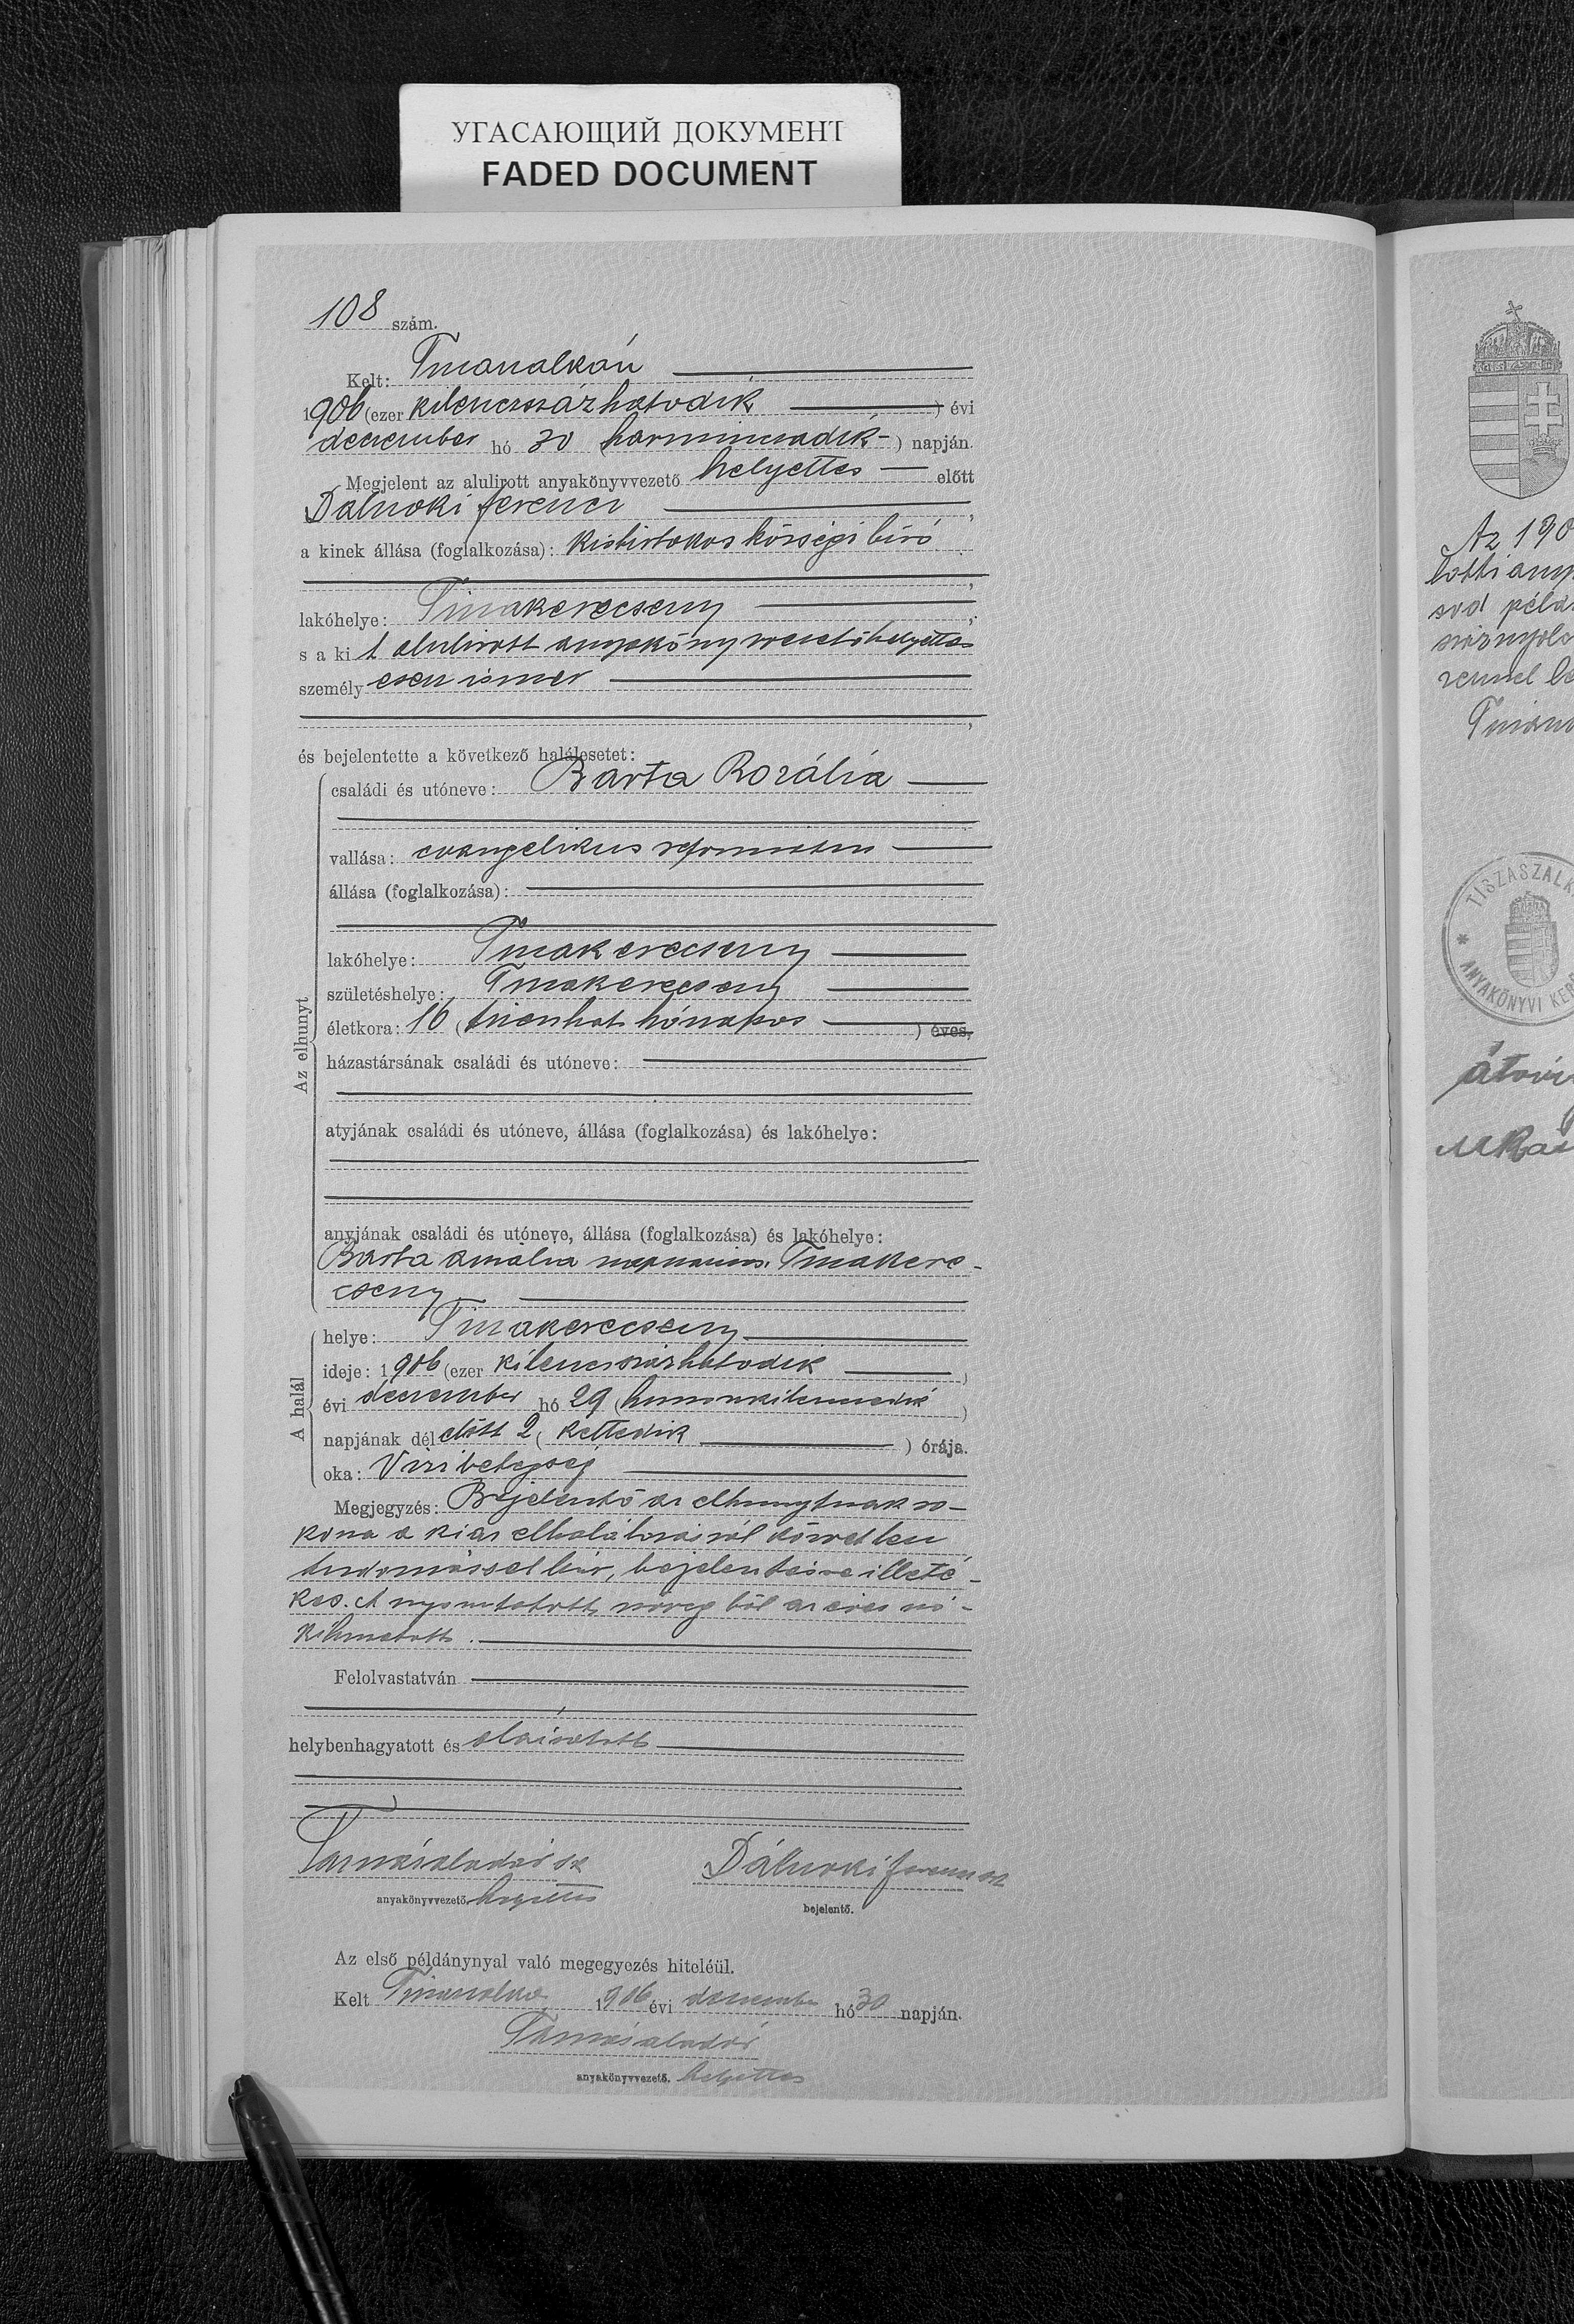 УГАСАЮЩИЙ ДОКУМЕНТ
FADED DOCUMENT
108 szám.
Kelt: Tiszaszalkán
1906 (ezer kilencszázhatodik ) évi
december hó 30 (harmincadik ) napján.
Megjelent az alulirott anyakönyvvezető helyettes előtt
Dálnoki Ferencz ,
a kinek állása (foglalkozása): kisbirtokos községi biró
,
lakóhelye: Tiszakerecseny ,
s a ki t alulirott anyakönyvvezetőhelyettes
személyesen ismer
,
és bejelentette a következő halálesetet:
családi és utóneve: Barta Rozália
vallása: evangelikus reformatus
állása (foglalkozása):
lakóhelye: Tiszakerecseny
születéshelye: Tiszakerecseny
életkora: 16 (tizenhat hónapos ) éves,
házastársának családi és utóneve:
atyjának családi és utóneve, állása (foglalkozása) és lakóhelye:
anyjának családi és utóneve, állása (foglalkozása) és lakóhelye:
Barta Amália napszámos. Tiszakere-
cseny
Az elhunyt
helye: Tiszakerecseny
ideje: 1906 (ezer kilencszázhatodik )
évi december hó 29 (huszonkilencedik )
napjának dél előtt 2 ( kettedik ) órája.
oka: Vizibetegség
A halál
Megjegyzés: Bejelentő az elhunytnak ro-
kona a ki az elhalálozásról közvetlen
tudomással bir, bejelentésre illeté-
kes. A nyomtatott szöveg ből az éves szó
kihuzatott.
Felolvastatván
helybenhagyatott és aláiratott
Tamás Aladár sk
anyakönyvvezető. helyettes
Dálnoki Ferencz sk
bejelentő.
Az első példánynyal való megegyezés hiteléül.
Kelt Tiszaszalka 1906 évi december hó 30 napján.
Tamás Aladár
anyakönyvvezető. helyettes
Az 190
sod péld
TISZASZALK
* ANYAKÖNYVI KER